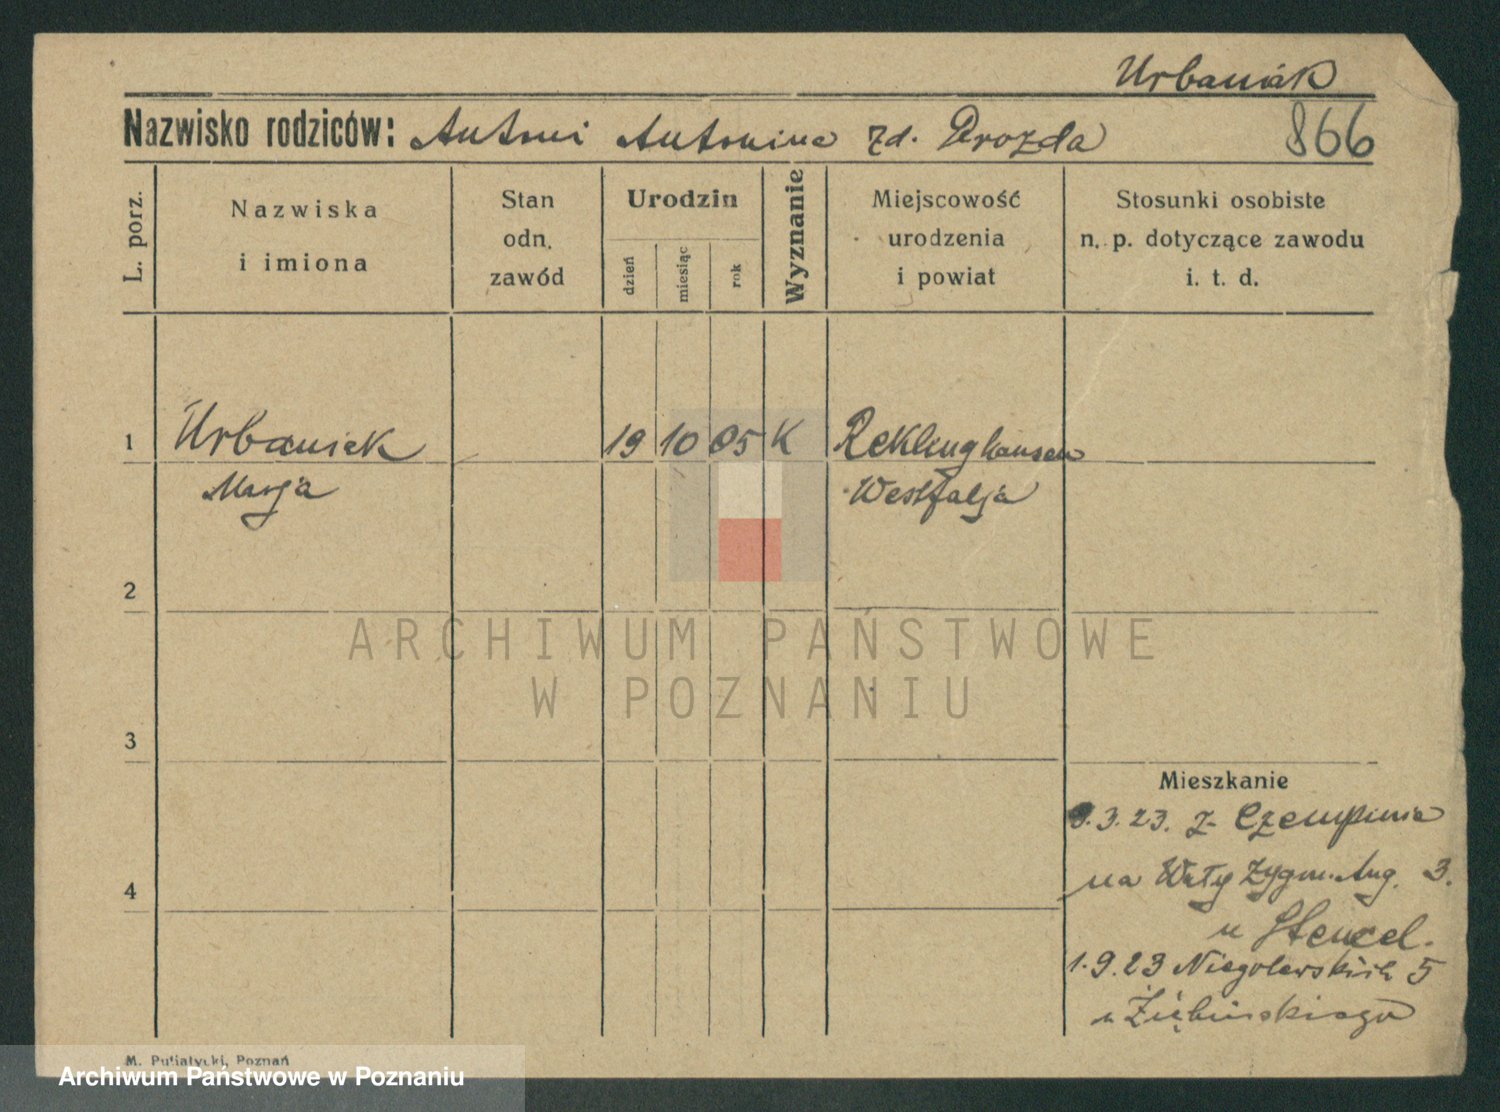 Urbaniak
Nazwisko rodziców: Antoni Antonina zd. Drozda 866
L. porz.
Nazwiska
i imiona
Stan
odn.
zawód
Urodzin
dzień
miesiąc
rok
Wyznanie
Miejscowość
urodzenia
i powiat
Stosunki osobiste
n. p. dotyczące zawodu
i. t. d.
1 Urbaniak 19 10 05 K Reklinghausen
Marja Westfalja
2
ARCHIWUM PAŃSTWOWE
W POZNANIU
3
Mieszkanie
3.23. z Czempinia
4 na Wały Zygm. Aug. 3.
u Stencel.
1.9.23 Niegolewskich 5
u Ziębińskiego
M. Putiatycki, Poznań
Archiwum Państwowe w Poznaniu